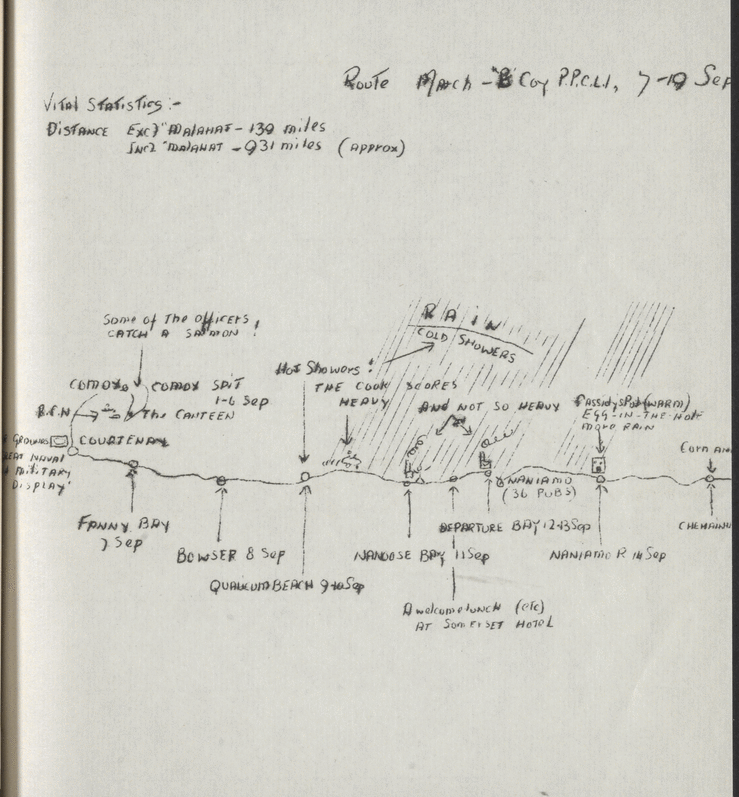 ROUTE MARCH - "B" Coy P.P.C.L.I, 7-19 Sep
VITAL STATISTICS :-
DISTANCE EXCL "MALAHAT - 139 miles
INCL "MALAHAT - 931 miles (APPROX)
RAIN
COLD SHOWERS
SOME OF THE OFFICERS
CATCH A SALMON !
HOT SHOWERS !
THE COOK SCORES
HEAVY
AND NOT SO HEAVY
COMOX
COMOX SPIT
1-6 Sep
R.C.N
The CANTEEN
CASSIDY SPOT (WARM)
EGG-IN-THE-HOLE
MORO RAIN
GROUNDS
COURTENAY
NAVAL
MILITARY
DISPLAY'
CORN AN
NANIAMO
(36 PUBS)
FANNY BAY
7 Sep
BOWSER 8 Sep
QUALICUM BEACH 9-10 Sep
NANOOSE BAY 11 Sep
DEPARTURE BAY 12-13 Sep
NANIAMO R 14 Sep
CHEMAINU
A welcome lunch (etc)
AT SOMERSET HOTEL